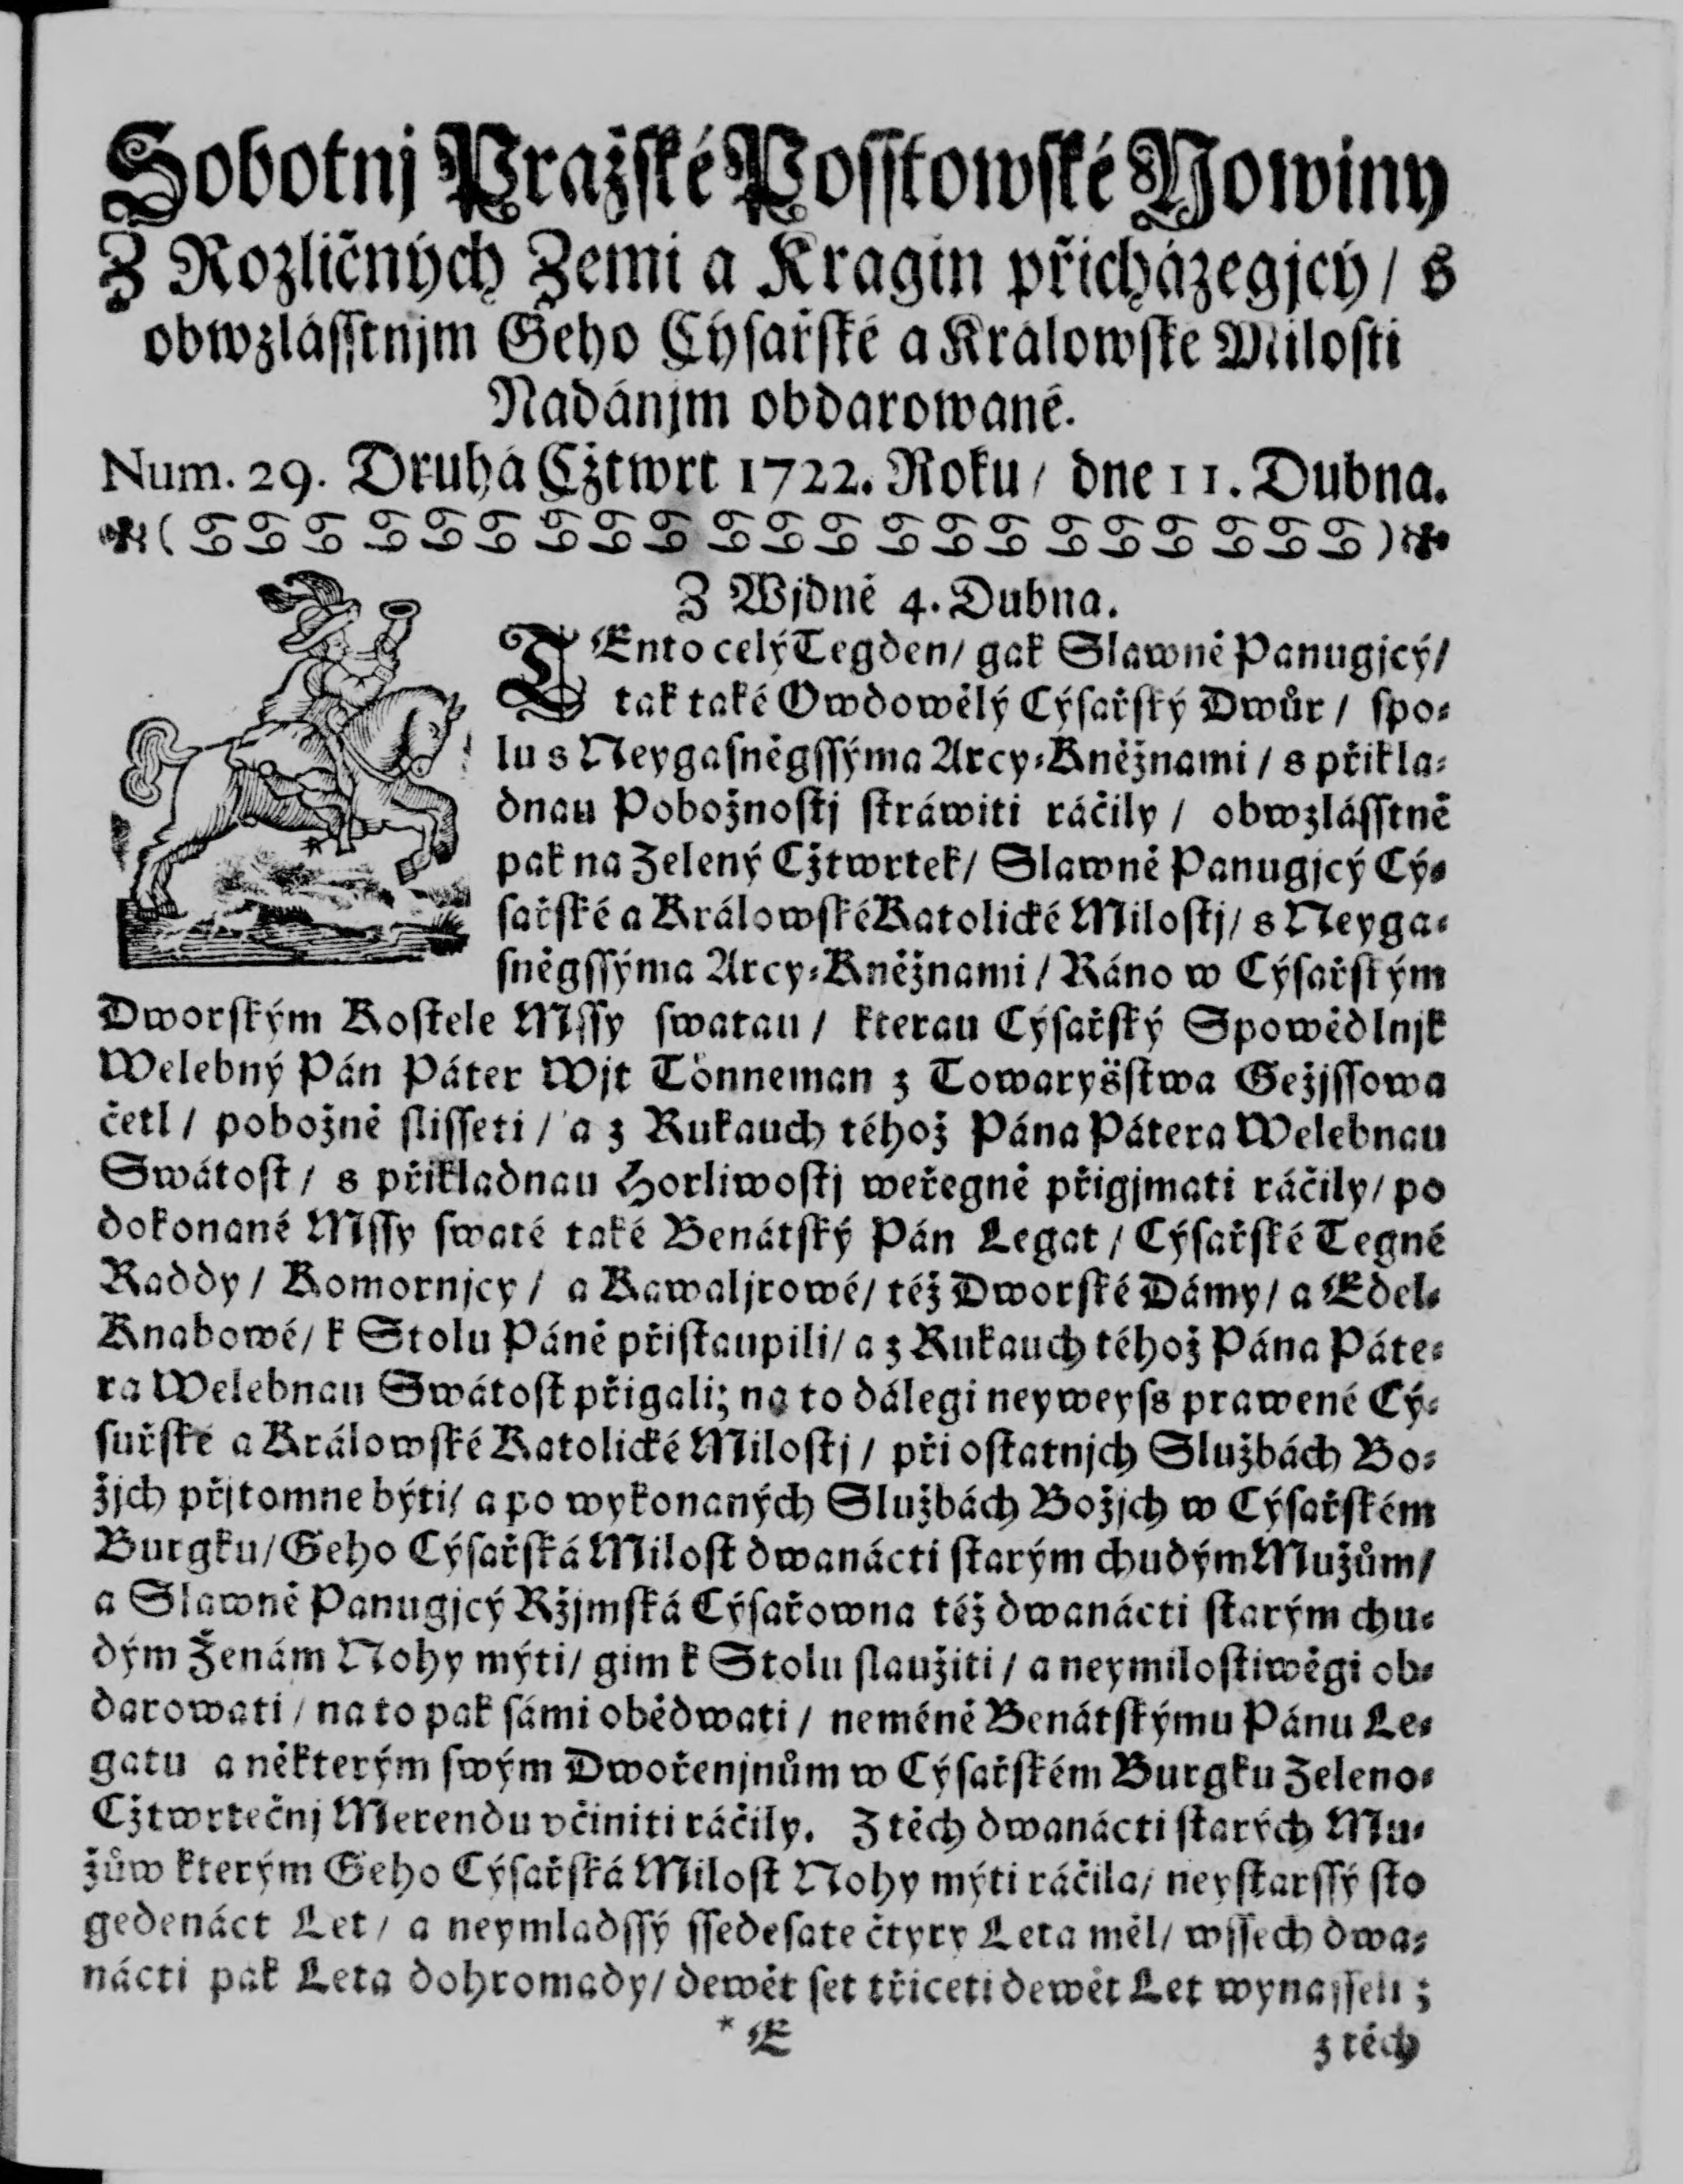 Sobotnj Pražſké Poſſtowſké Nowiny
Z Rozličných Zemi a Kragin přicházegjcý / s
obwzláſſtnjm Geho Cýſařſké a Králowſké Miloſti
Nadánjm obdarowané.
Num. 29. Druhá Cžtwrt 1722. Roku / dne 11. Dubna.
Z Wjdně 4. Dubna.
TEnto celý Tegden / gak Slawně Panugjcý /
tak také Owdowělý Cýſařſký Dwůr / ſpo-
lu s Neygaſněgſſýma Arcy-Kněžnami / s přikla-
dnau Pobožnoſtj ſtráwiti ráčily / obwzláſſtně
pak na Zelený Cžtwrtek / Slawně Panugjcý Cý-
ſařſké a Králowſké Katolické Miloſtj / s Neyga-
ſněgſſýma Arcy-Kněžnami / Ráno w Cýſařſkým
Dworſkým Koſtele Mſſy ſwatau / kterau Cýſařſký Spowědlnjk
Welebný Pán Páter Wjt Tönneman z Towaryšſtwa Gežjſſowa
četl / pobožně ſliſſeti / a z Rukauch téhož Pána Pátera Welebnau
Swátoſt / s přikladnau Horliwoſtj weřegně přigjmati ráčily / po
dokonané Mſſy ſwaté také Benátſký Pán Legat / Cýſařſké Tegné
Raddy / Komornjcy / a Kawaljrowé / též Dworſké Dámy / a Edel-
Knabowé / k Stolu Páně přiſtaupili / a z Rukauch téhož Pána Páte-
ra Welebnau Swátoſt přigali; na to dálegi neyweyſs prawené Cý-
ſuřſké a Králowſké Katolické Miloſtj / při oſtatnjch Službách Bo-
žjch přjtomne býti / a po wykonaných Službách Božjch w Cýſařſkém
Burgku / Geho Cýſařſká Miloſt dwanácti ſtarým chudým Mužům /
a Slawně Panugjcý Ržjmſká Cýſařowna též dwanácti ſtarým chu-
dým Ženám Nohy mýti / gim k Stolu ſlaužiti / a neymiloſtiwěgi ob-
darowati / na to pak ſámi obědwati / neméně Benátſkýmu Pánu Le-
gatu a některým ſwým Dwořenjnům w Cýſařſkém Burgku Zeleno-
Cžtwrtečnj Merendu včiniti ráčily. Z těch dwanácti ſtarých Mu-
žůw kterým Geho Cýſařſká Miloſt Nohy mýti ráčila / neyſtarſſý ſto
gedenáct Let / a neymladſſý ſſedeſate čtyry Leta měl / wſſech dwa-
nácti pak Leta dohromady / dewět ſet třiceti dewět Let wynaſſeli ;
* E
z těch